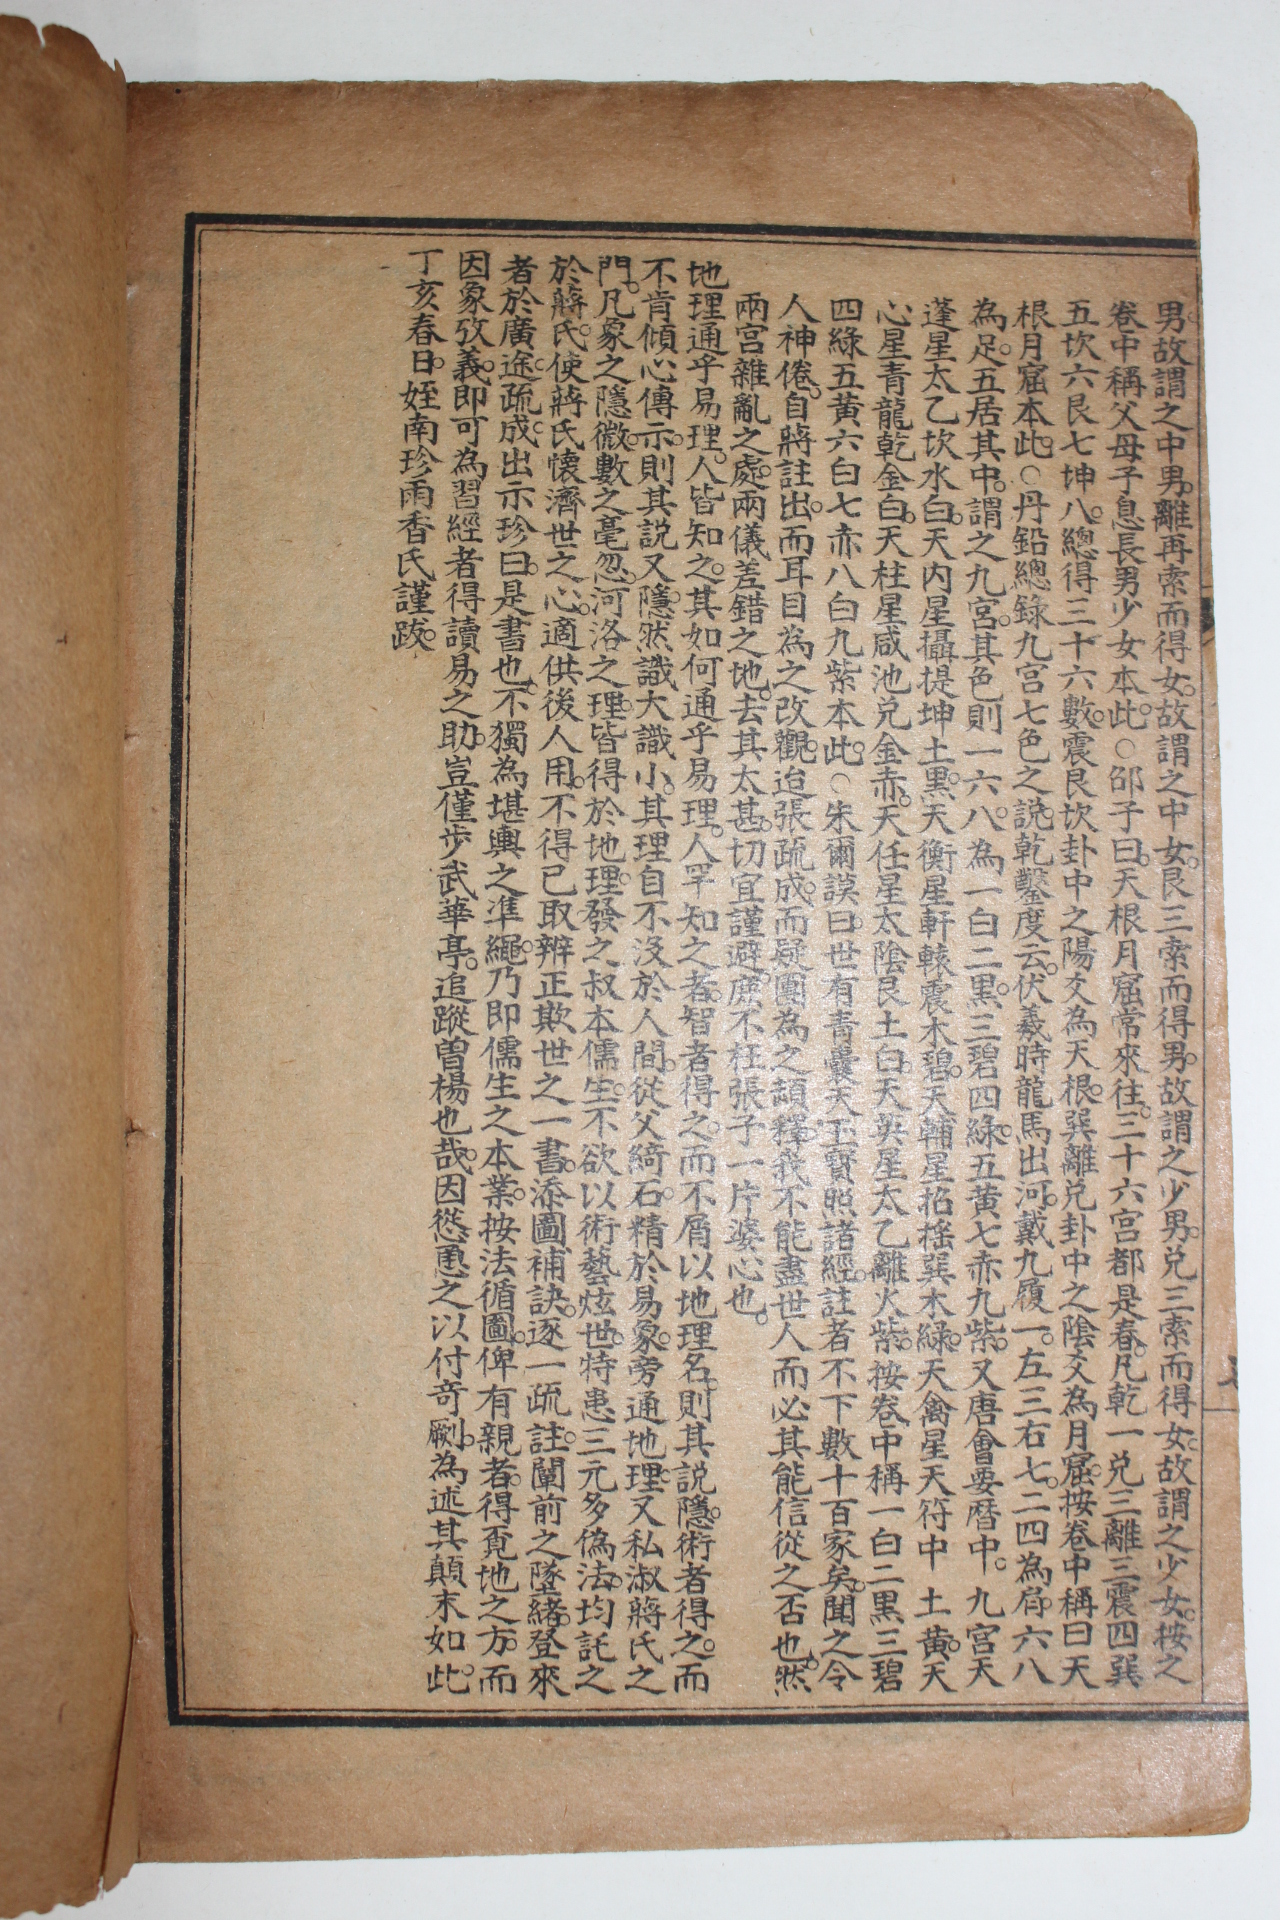 男。故謂之中男。離再索而得女。故謂之中女。艮三索而得男。故謂之少男。兑三索而得女。故謂之少女。按之
卷中稱父母子息長男少女本此。○邵子曰。天根月窟常來往。三十六宮都是春。凡乾一兑二離三震四巽
五坎六艮七坤八。總得三十六數。震艮坎卦中之陽爻為天根。巽離兑卦中之陰爻為月窟。按卷中稱曰天
根月窟本此。○丹鉛總錄九宮七色之說。乾鑿度云。伏羲時龍馬出河。戴九履一。左三右七。二四為肩。六八
為足。五居其中。謂之九宮。其色則一六八。為一白二黑三碧四綠五黃七赤九紫。又唐會要曆中。九宮天
蓬星太乙坎水白。天内星攝提坤土黑。天衡星軒轅震木碧。天輔星招搖巽木綠。天禽星天符中土黃。天
心星青龍乾金白。天柱星咸池兑金赤。天任星太陰艮土白。天英星太乙離火紫。按卷中稱一白二黑三碧
四綠五黃六白七赤八白九紫本此。○朱爾謨曰。世有青囊天玉寶照諸經。註者不下數十百家矣。聞之令
人神倦。自蔣註出。而耳目為之改觀。迨張疏成。而疑團為之頡釋。我不能盡世人而必其能信從之否也。然
兩宮雜亂之處。兩儀差錯之地。去其太甚。切宜謹避。庶不枉張子一片婆心也。
地理通乎易理。人皆知之。其如何通乎易理。人罕知之者。智者得之。而不屑以地理名。則其說隱。術者得之。而
不肯傾心傳示。則其說又隱。然識大識小。其理自不沒於人間。從父綺石。精於易象。旁通地理。又私淑蔣氏之
門。凡象之隱微。數之毫忽。河洛之理。皆得於地理發之。叔本儒生。不欲以術藝炫世。特患三元多偽法。均託之
於蔣氏。使蔣氏懷濟世之心。適供後人用。不得已取辨正欺世之一書。添圖補訣。逐一疏註。闡前之墜緒。登來
者於廣途。疏成。出示珍曰。是書也。不獨為堪輿之準繩。乃即儒生之本業。按法循圖。俾有親者。得覓地之方。而
因象攷義。即可為習經者得讀易之助。豈僅步武華亭。追蹤曾楊也哉。因慫慂之以付奇劂。為述其顛末如此。
丁亥春日。姪南珍雨香氏謹跋。